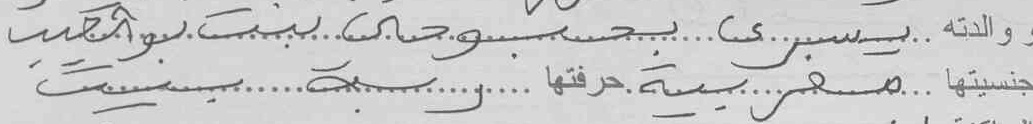 ووالدته يسرى بحبوحي بنت بوشعيب
جنسيتها مغربية حرفتها ربة بيت